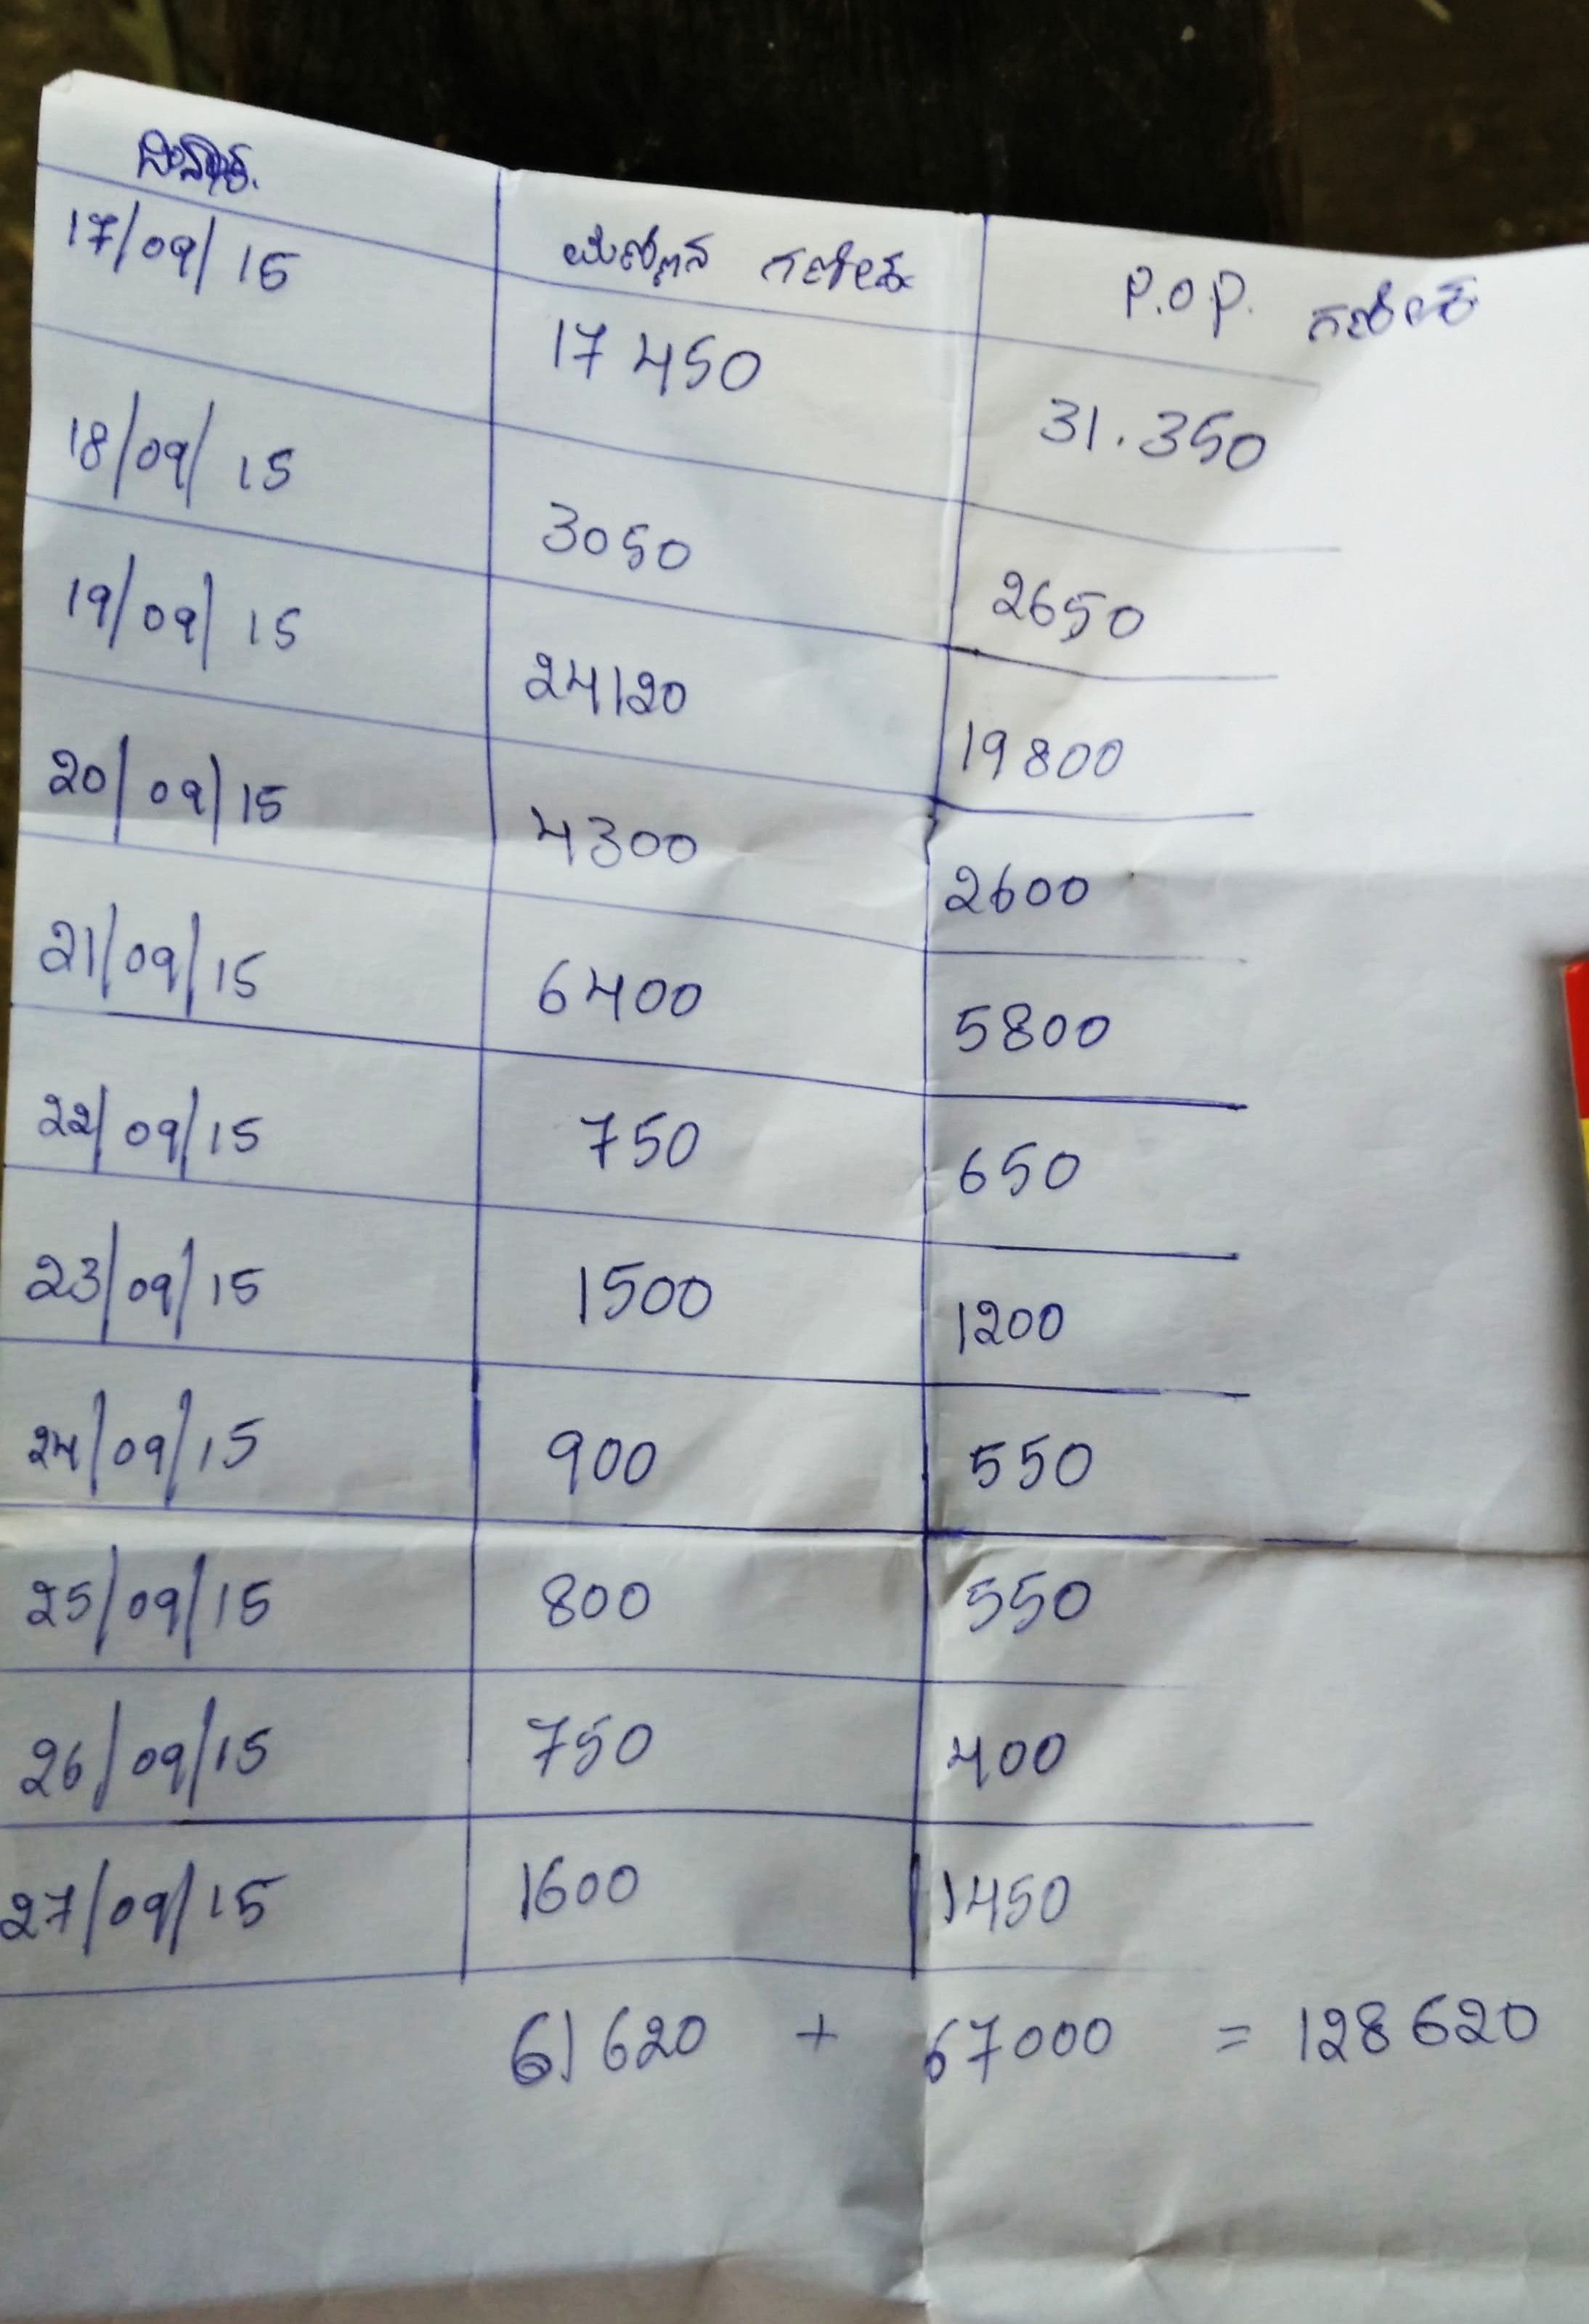 ದಿನಾಂಕ. ಮಣ್ಣಿನ ಗಣೇಶ P.O.P. ಗಣೇಶ
17/09/15 17450 31.350
18/09/15 3050 2650
19/09/15 24120 19800
20/09/15 4300 2600
21/09/15 6400 5800
22/09/15 750 650
23/09/15 1500 1200
24/09/15 900 550
25/09/15 800 550
26/09/15 750 400
27/09/15 1600 1450
61620 + 67000 = 128620